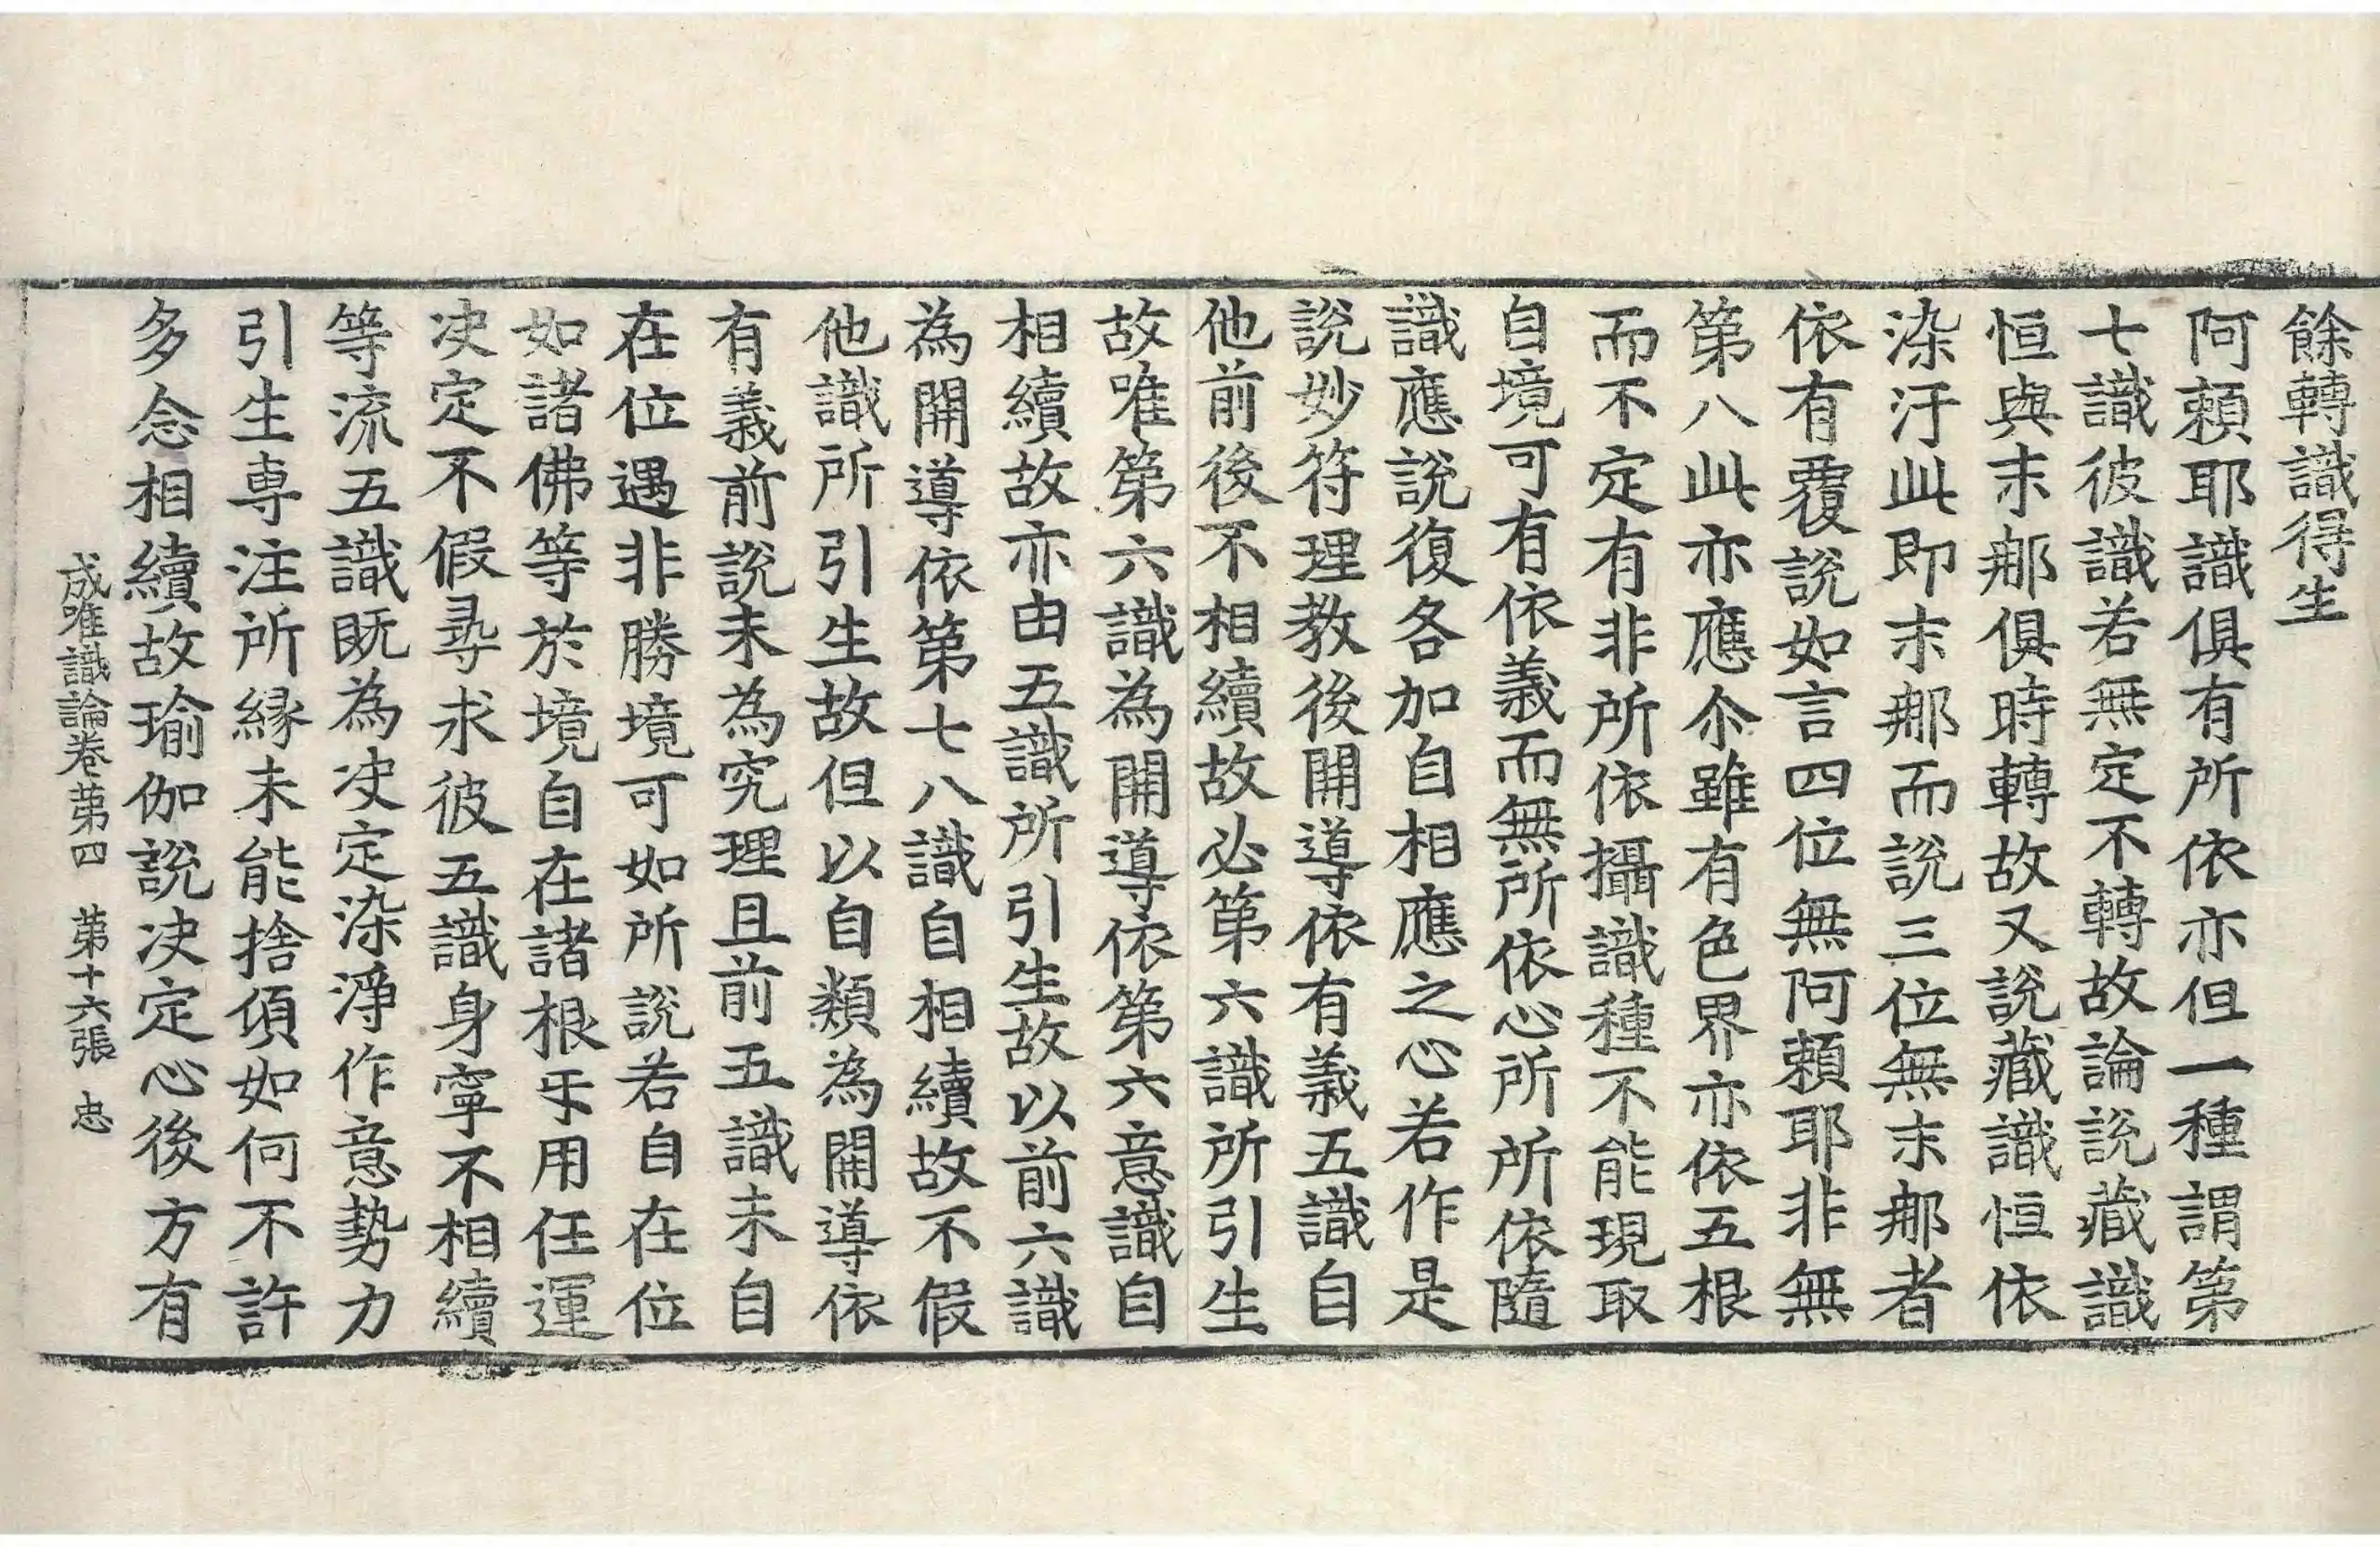 餘轉識得生
阿賴耶識俱有所依亦但一種謂第
七識彼識若無定不轉故論說藏識
恒與末那俱時轉故又說藏識恒依
染汙此即末那而說三位無末那者
依有覆說如言四位無阿賴耶非無
第八此亦應尒雖有色界亦依五根
而不定有非所依攝識種不能現取
自境可有依義而無所依心所所依隨
識應說復各加自相應之心若作是
說妙符理教後開導依有義五識自
他前後不相續故必第六識所引生
故唯第六識為開導依第六意識自
相續故亦由五識所引生故以前六識
為開導依第七八識自相續故不假
他識所引生故但以自類為開導依
有義前說未為究理且前五識未自
在位遇非勝境可如所說若自在位
如諸佛等於境自在諸根㸦用任運
决定不假尋求彼五識身寧不相續
等流五識既為决定染淨作意勢力
引生専注所緣未能捨頃如何不許
多念相續故瑜伽說决定心後方有
成唯識論卷苐四 苐十六張 忠